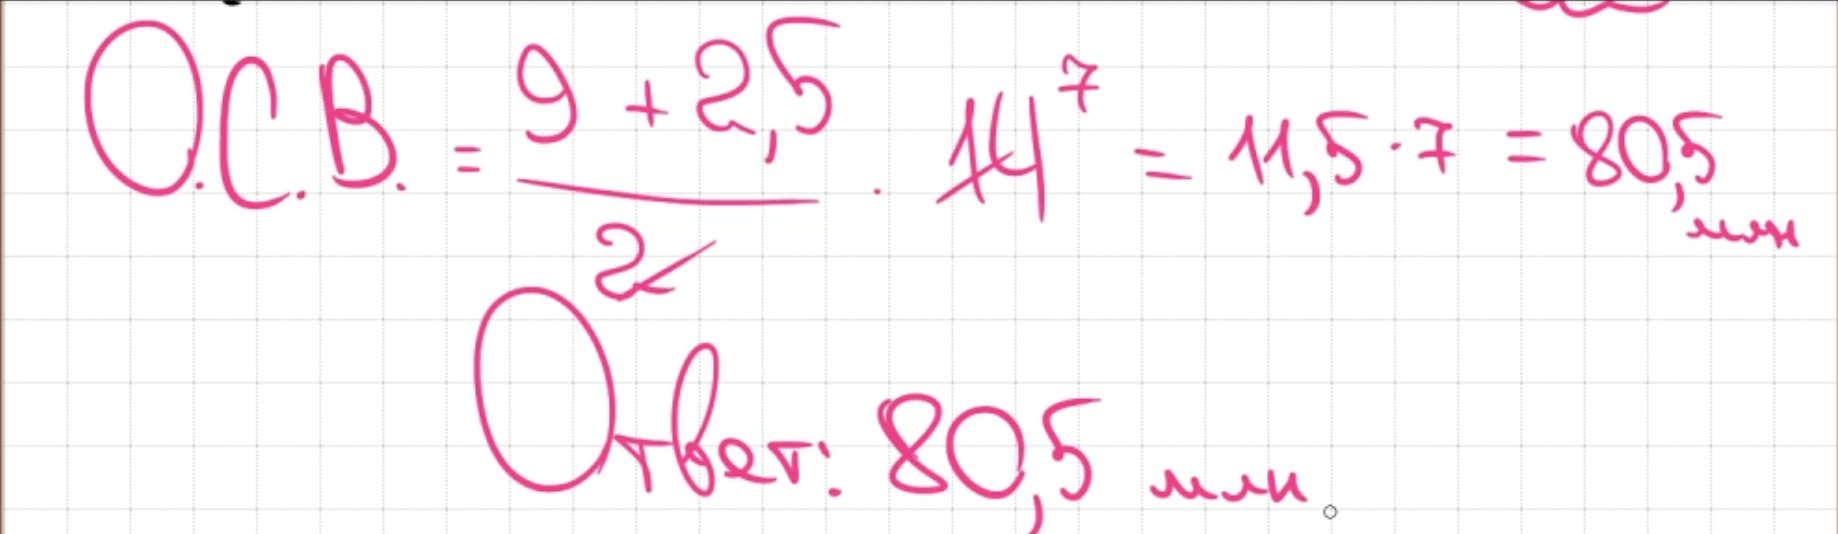 О.С.В. = (9 + 2,5)/2 · 14 7 = 11,5 · 7 = 80,5 млн
Ответ: 80,5 млн.